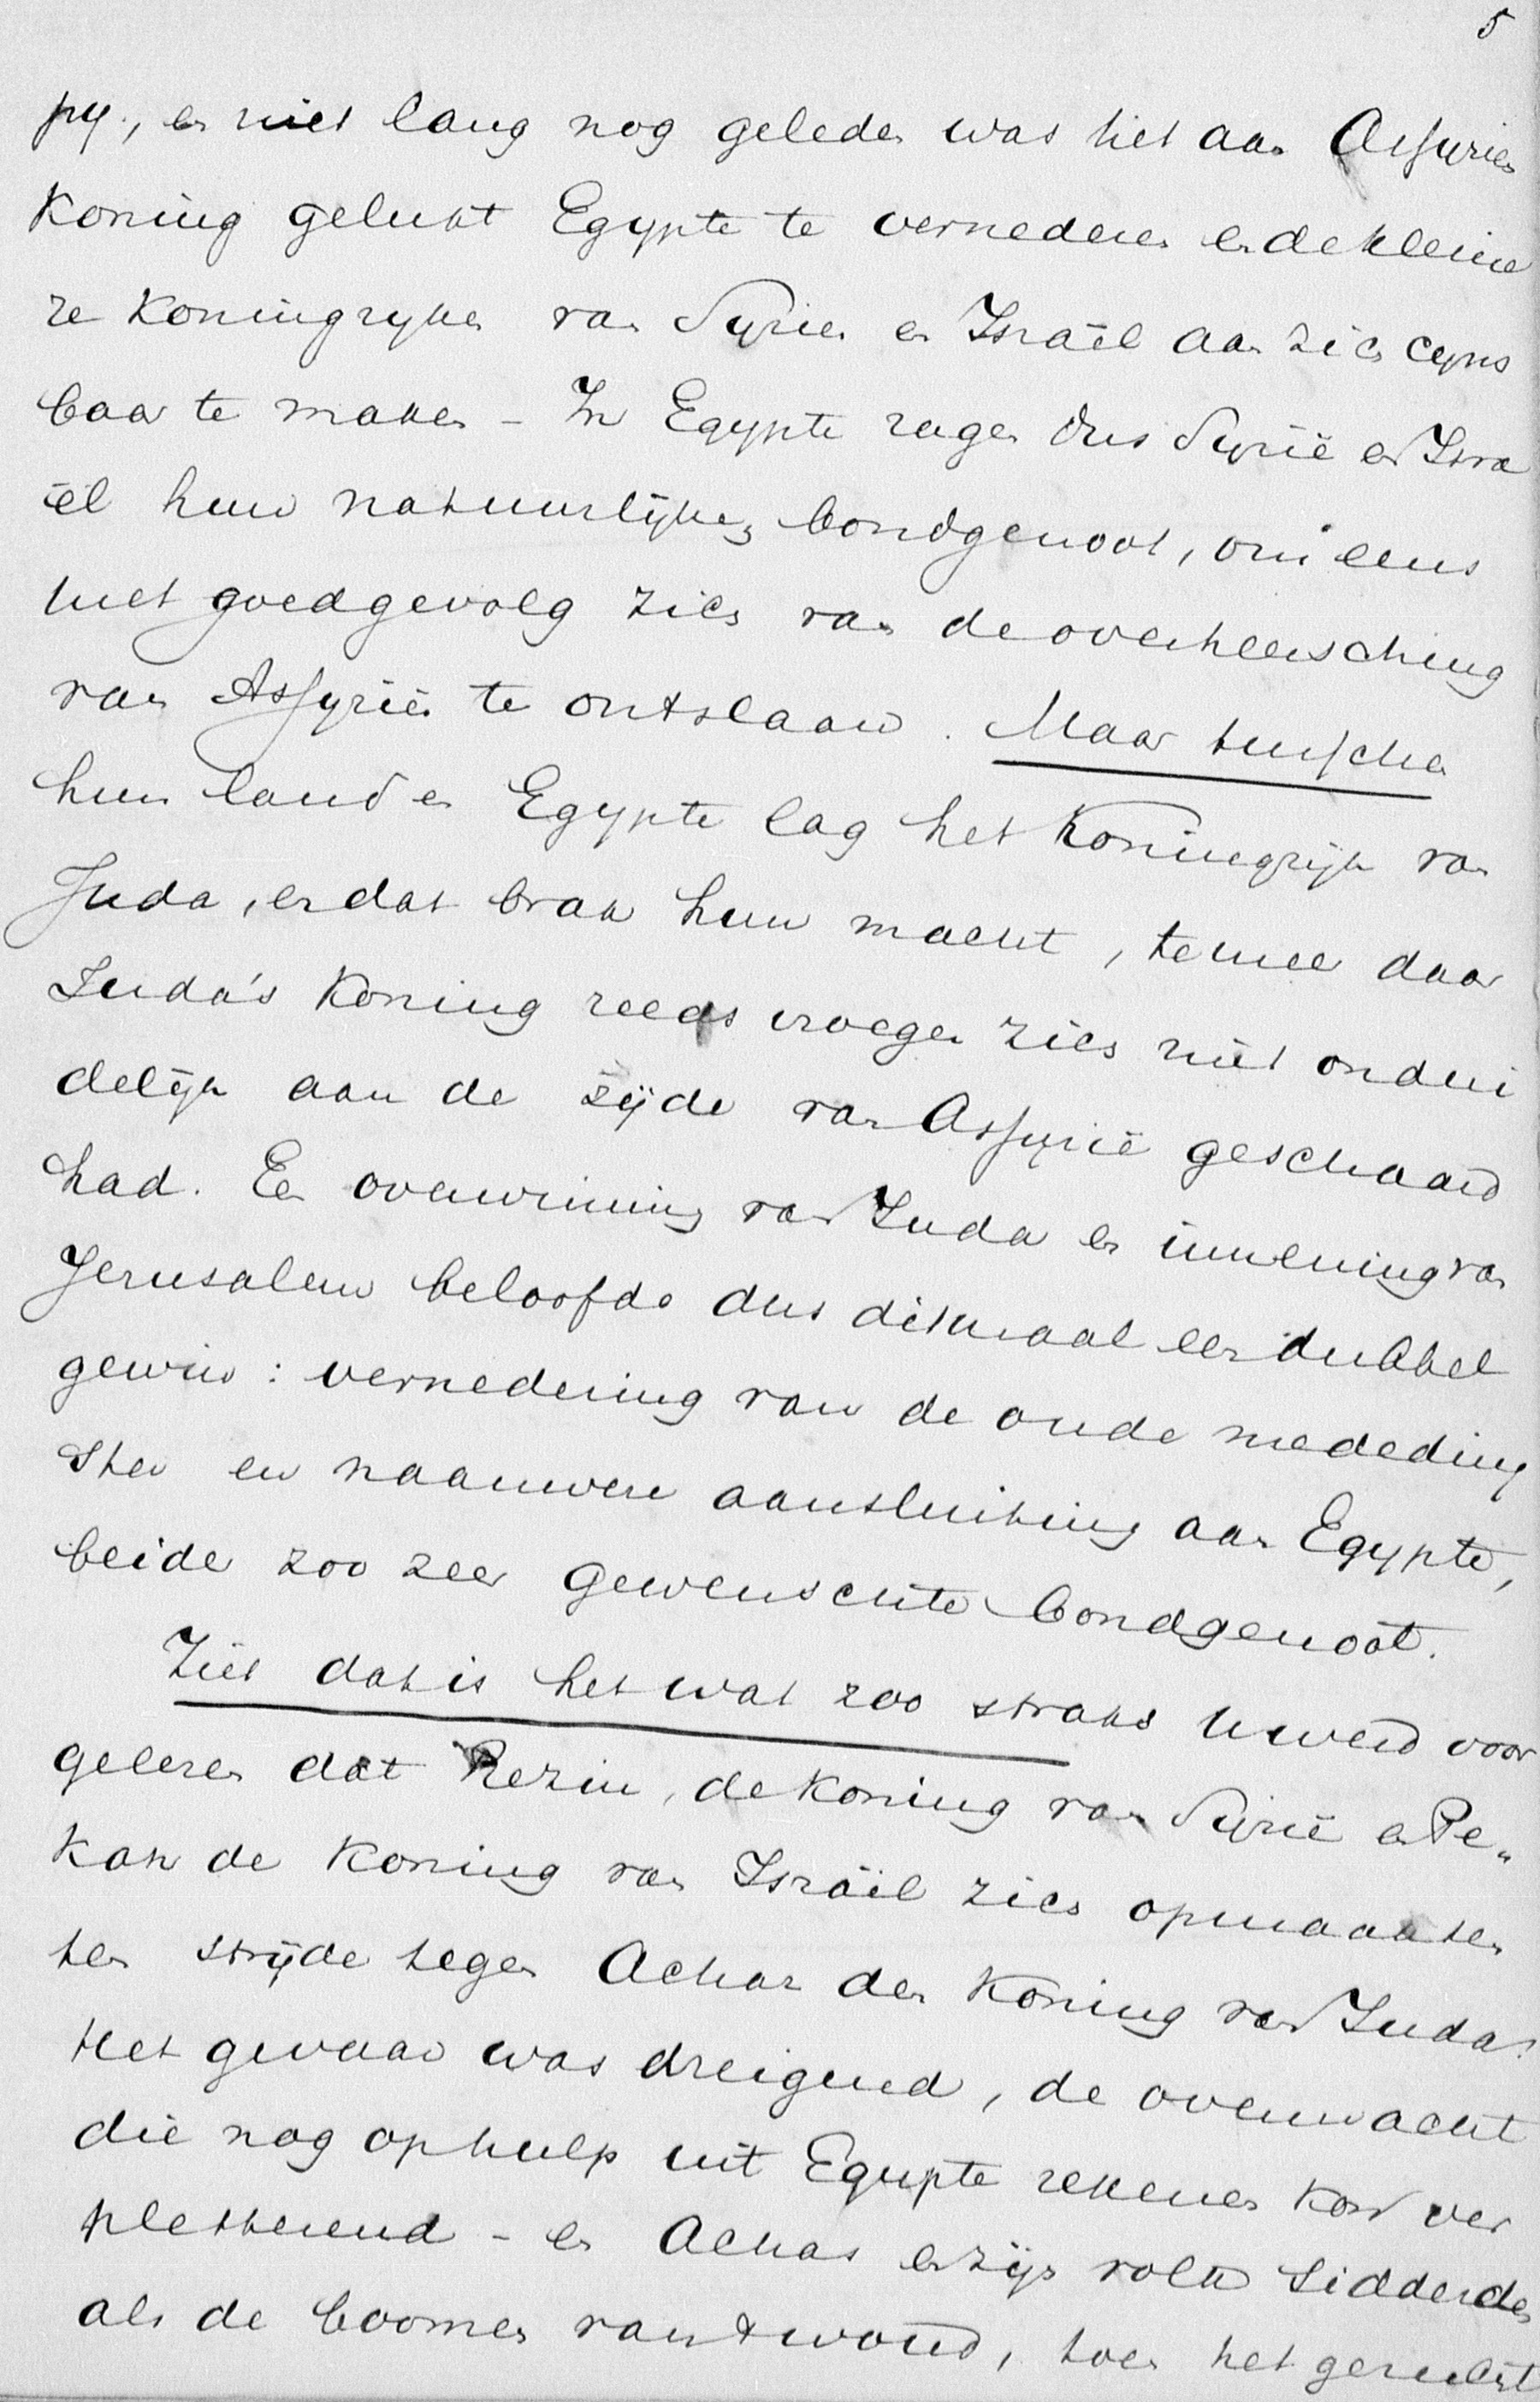 5
py., en niet lang nog geleden was het aan Assyries
Koning gelukt Egypte te vernederen en de kleine
re Koningryken van Syrien en Israël aan zich cyns
baar te maken - In Egypte zagen dus Syrië en Isra
ël hun natuurlijken bondgenoot, om eens
met goedgevolg zich van de overheersching
van Assyrië te ontslaan. Maar tusschen
hun land en Egypte lag het Koningrijk van
Juda, en dat brak hun macht, temeer daar
Juda's Koning reeds vroeger zich niet ondui
delijk aan de zijde van Assyrië geschaard
had. Een overwinning van Juda en inneming van
Jerusalem beloofde dus ditmaal een dubbel
gewin: vernedering van de oude mededing
ster en naauwere aansluiting aan Egypte,
beider zoo zeer gewenschte bondgenoot.
Ziet dat is het wat zoo straks U werd voor
gelezen dat Rezin, de koning van Syrië en Pe„
kah de Koning van Israël zich opmaakten
ten strijde tegen Achaz den Koning van Juda.
Het gevaar was dreigend, de overmacht
die nog op hulp uit Egypte rekenen kon ver
pletterend - en Achas en zijn volk sidderden
als de boomen van 't woud, toen het gerucht